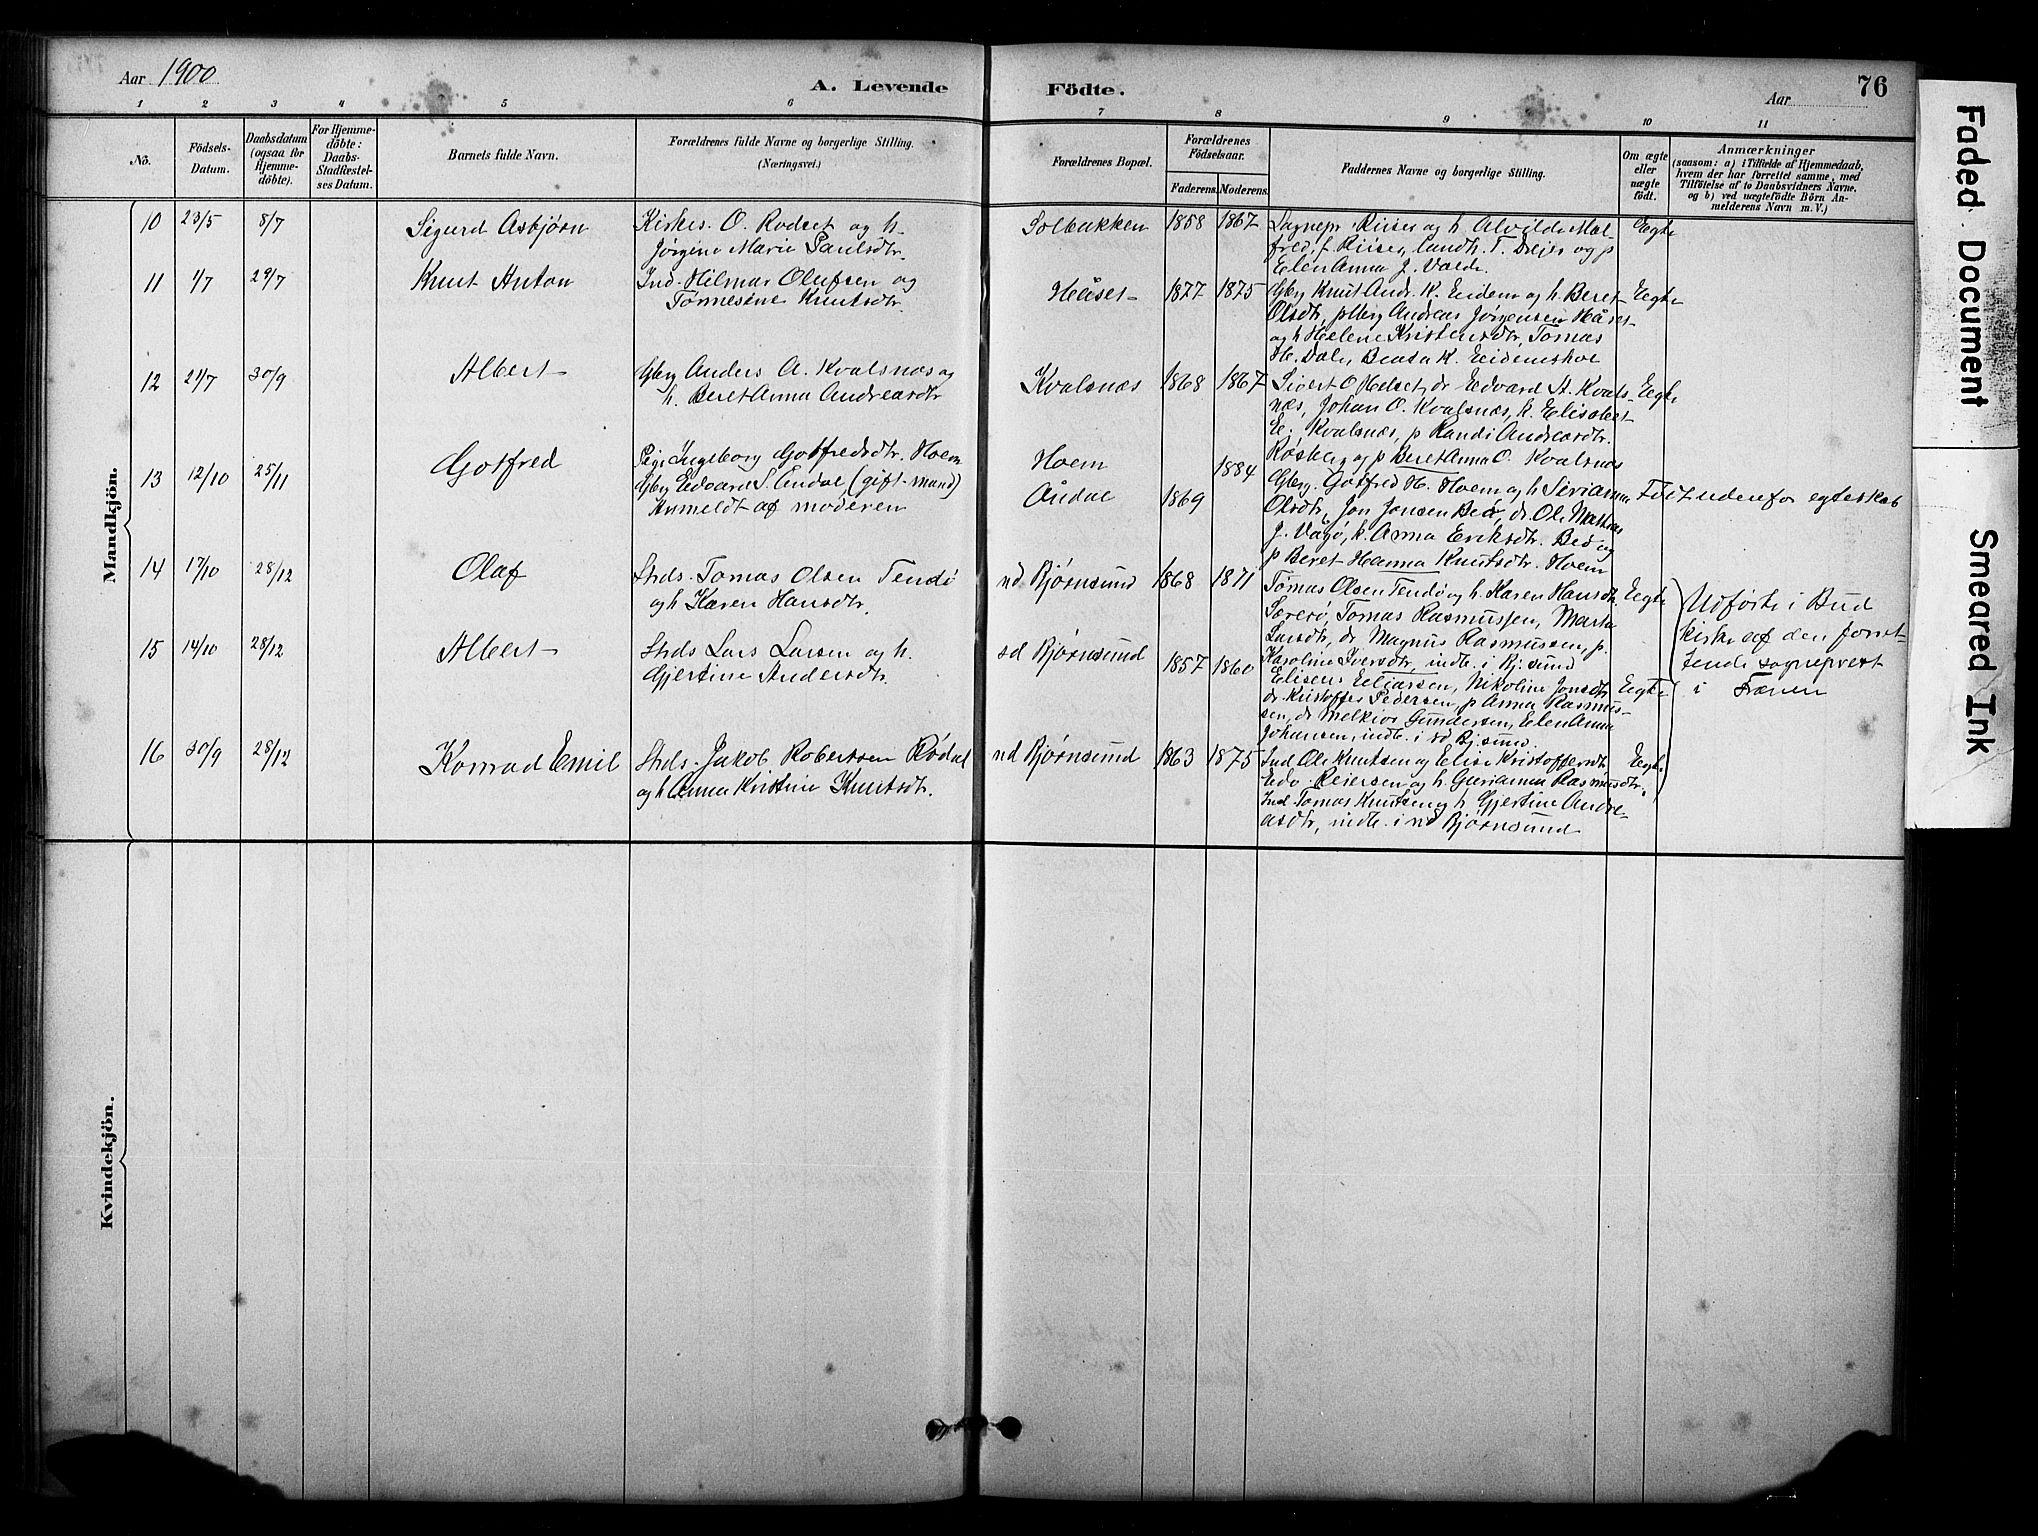 Aar 1900
A. Levende
Födte.
Aar
76
1 2 3 4 5 6 7 8 9 10 11
No.
Födsels-
Datum.
Daabsdatum
(ogsaa for
Hjemme-
döbte).
For Hjemme-
döbte:
Daabs-
Stadfæstel-
ses Datum.
Barnets fulde Navn.
Forældrenes fulde Navne og borgerlige Stilling.
(Næringsvei.)
Forældrenes Bopæl.
Forældrenes
Födselsaar.
Faderens. Moderens.
Faddernes Navne og borgerlige Stilling.
Om ægte
eller
uægte
født.
Anmærkninger
(saasom: a) i Tilfælde af Hjemmedaab,
hvem der har forrettet samme, med
Tilføielse af to Daabsvidners Navne,
og b) ved uægtefödte Börn An-
melderens Navn m. V.)
Mandkjön.
10 23/5 8/7 Sigurd Asbjørn
Kirkes. O. Rødset og h.
Jørgine Marie Paulsdtr.
Solbakken 1858 1867
Sognepr. Riiser og h Alvilde Mal-
fred, f. Riiser, landh. T. Dreier og p
Elen Anna J. Valde.
Ægte
11 1/7 29/7 Knut Anton
Ind. Hilmar Olufsen og
Tomesine Knutsdtr.
Håset 1877 1875
Gbrg Knut Andr. K. Eidem og h. Beret
Olsdtr, pbrg Andreas Jørgensen Håset
og h Helene Kristensdtr, Tomas
H. Dale, Beata K. Eidemshoe
Ægte
12 21/7 30/9 Albert
Gbrg Anders A. Kvalsnæs og
h. Beret Anna Andreasdtr
Kvalsnæs 1868 1867
Sivert O Helset, dr Edvard A. Kvals-
næs, Johan O. Kvalsnæs, k. Elisabet
E. Kvalsnæs, p Randi Andreasdtr.
Røsberg og p Beret Anna O. Kvalsnæs
Ægte
13 12/10 25/11 Gotfred
Pige Ingeborg Gotfredsdtr. Hoem
Gbrg Edvard S. Åndal (gift mand)
Anmeldt af moderen
Hoem 1884
Åndal 1869
Gbrg. Gotfred H. Hoem og h Sirianna
Olsdtr, Jon Jonsen Beø, dr. Ole Mathias
J. Vågø, k. Anna Eriksdtr. Beø og
p Beret Hanna Knutsdtr. Hoem
Født udenfor egteskab
14 17/10 28/12 Olaf
Strds. Tomas Olsen Tendø
og h Karen Hansdtr.
nd Bjørnsund 1868 1871
Tomas Olsen Tendø og h. Karen Hansdtr.
Sørerø, Tomas Rasmussen, Marta
Larsdtr, dr Magnus Rasmussen, p.
Karoline Iversdtr, indb. i Bj.sund
Ægte
Udførte i Bud
kirke af den forret-
tende sogneprest
i Fræner
15 14/10 28/12 Albert
Strds Lars Larsen og h.
Gjertine Andersdtr.
sd Bjørnsund 1857 1860
Elisens Eliassen, Nikoline Jonsdtr
dr Kristoffer Pedersen, p Anna Rasmus-
sen, dr Melkior Gundersen, Elen Anna
Johansen, indb. i sd Bj.sund.
Ægte
16 30/9 28/12 Konrad Emil
Strds. Jakob Robertsen Rødal
og h Anna Kristine Knutsdtr.
nd Bjørnsund 1863 1875
Ind Ole Knutsen og Elise Kristoffersdtr
Edv. Reiersen og h Gurianna Rasmusdtr,
Ind Tomas Knutsen og h Gjertine Andre-
asdtr, indb. i nd Bjørnsund
Ægte
Kvindekjön.
Faded Document
Smeared Ink